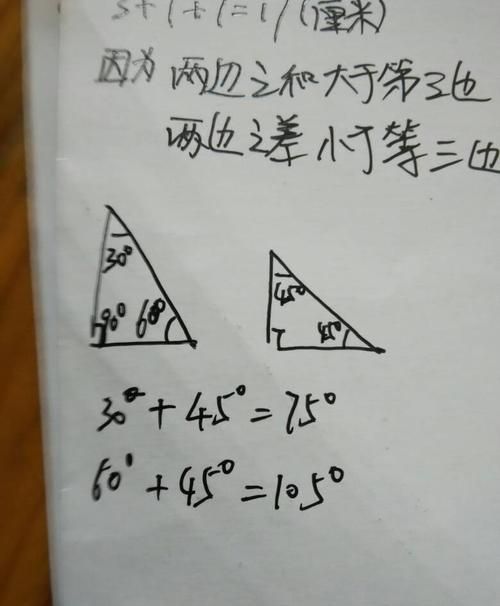 5+1+1=17(厘米)
因为 两边之和大于第三边
两边之差小于第三边
30° 90° 60°
45° 45°
30°+45°=75°
60°+45°=105°